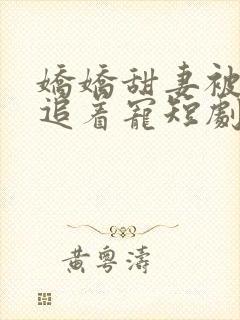 嬌嬌甜妻被
追着寵短劇
黄粤濤